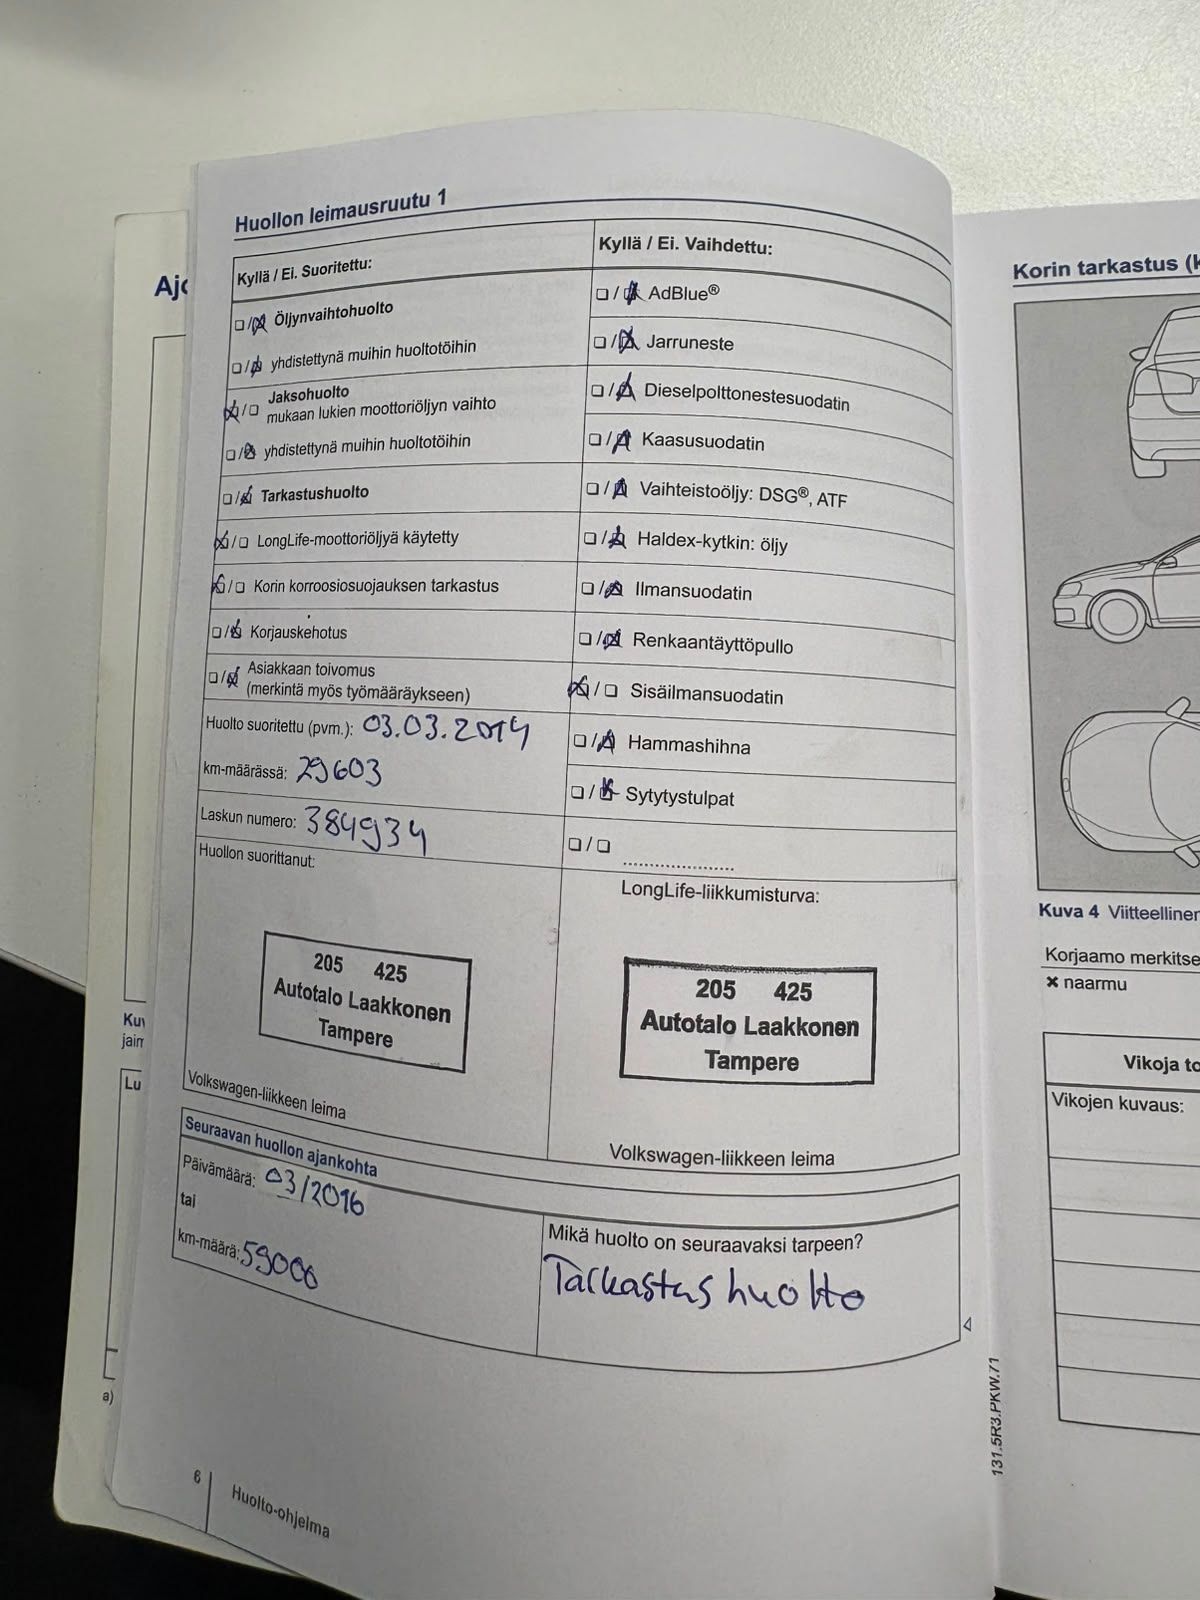 Huollon leimausruutu 1
Kyllä / Ei. Suoritettu:
☐/☒ Öljynvaihtohuolto
☐/☒ yhdistettynä muihin huoltotöihin
☒/☐ Jaksohuolto
mukaan lukien moottoriöljyn vaihto
☐/☒ yhdistettynä muihin huoltotöihin
☐/☒ Tarkastushuolto
☒/☐ LongLife-moottoriöljyä käytetty
☒/☐ Korin korroosiosuojauksen tarkastus
☐/☒ Korjauskehotus
☐/☒ Asiakkaan toivomus
(merkintä myös työmääräykseen)
Huolto suoritettu (pvm.): 03.03.2014
km-määrässä: 29603
Laskun numero: 384934
Huollon suorittanut:
205 425
Autotalo Laakkonen
Tampere
Volkswagen-liikkeen leima
Kyllä / Ei. Vaihdettu:
☐/☒ AdBlue®
☐/☒ Jarruneste
☐/☒ Dieselpolttonestesuodatin
☐/☒ Kaasusuodatin
☐/☒ Vaihteistoöljy: DSG®, ATF
☐/☒ Haldex-kytkin: öljy
☐/☒ Ilmansuodatin
☐/☒ Renkaantäyttöpullo
☒/☐ Sisäilmansuodatin
☐/☒ Hammashihna
☐/☒ Sytytystulpat
☐/☐ ....................
LongLife-liikkumisturva:
205 425
Autotalo Laakkonen
Tampere
Volkswagen-liikkeen leima
Seuraavan huollon ajankohta
Päivämäärä: 03/2016
tai
km-määrä: 59000
Mikä huolto on seuraavaksi tarpeen?
Tarkastushuolto
6
Huolto-ohjelma
131.5R3.PKW.71
Ajo
Kuv
jaim
Lu
a)
Korin tarkastus (k
Kuva 4 Viitteellinen
Korjaamo merkitse
✖ naarmu
Vikoja to
Vikojen kuvaus: